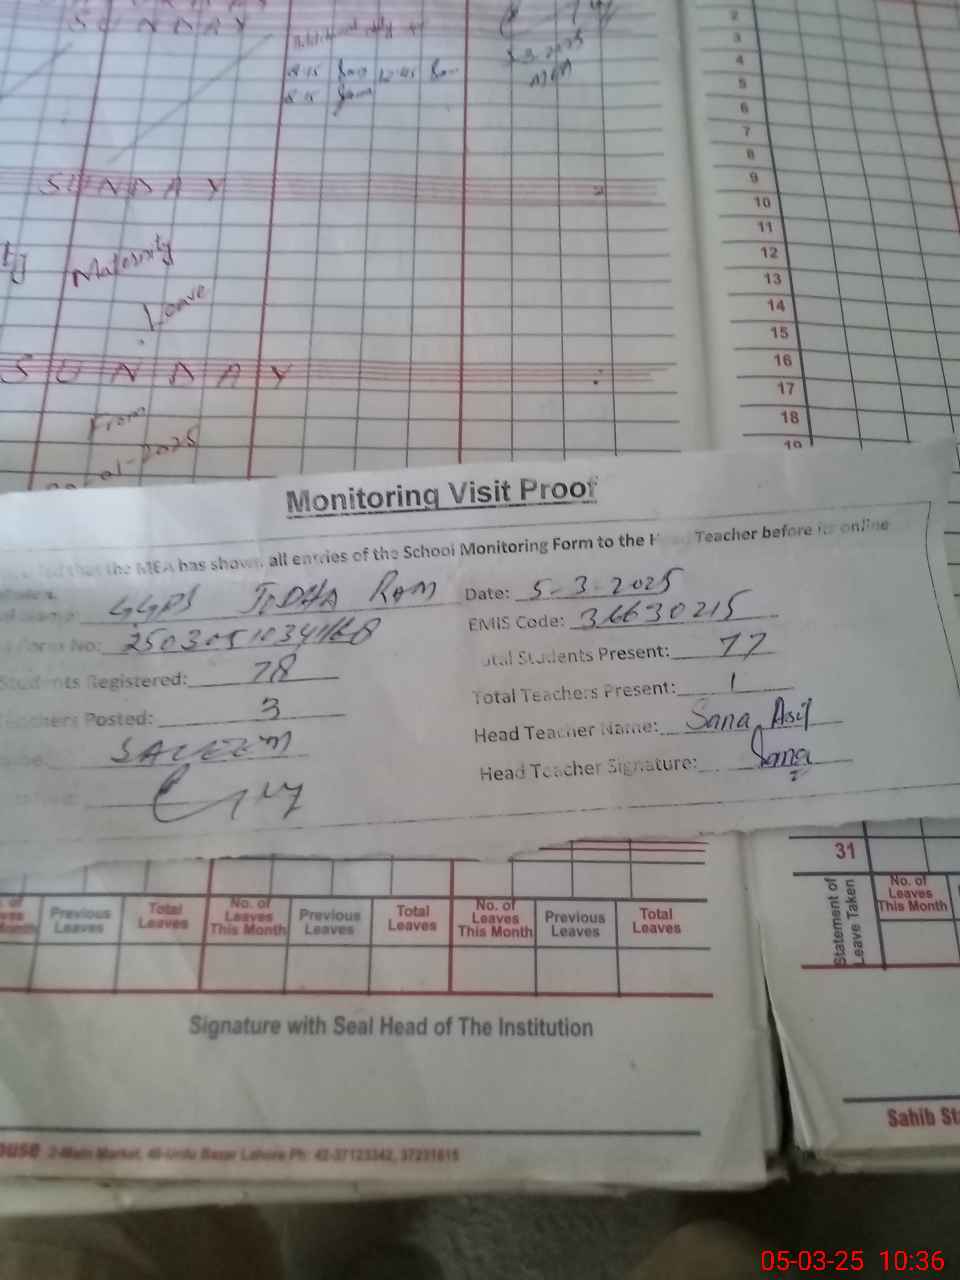 SUNDAY
8-15 Sana 12-45 Sana
8-15 Sana
5.3.2025
MEA
SUNDAY
Maternity
Leave
SUNDAY
From
01-2025
2
3
4
5
6
7
8
9
10
11
12
13
14
15
16
17
18
19
Monitoring Visit Proof
that the MEA has shown all entries of the School Monitoring Form to the Head Teacher before its online
GGPS JODHA RAM Date: 5-3-2025
Form No: EMIS Code: 36630215
Students Registered: 78 Total Students Present: 77
Teachers Posted: 3 Total Teachers Present: 1
SALEEM Head Teacher Name: Sana Asif
Head Teacher Signature: Sana
31
Previous Leaves Total Leaves No. of Leaves This Month Previous Leaves Total Leaves No. of Leaves This Month Previous Leaves Total Leaves
Statement of Leave Taken
No. of Leaves This Month
Signature with Seal Head of The Institution
Sahib St
ouse 2-Main Market, 40-Urdu Bazar Lahore Ph: 42-37123342, 37231615
05-03-25 10:36